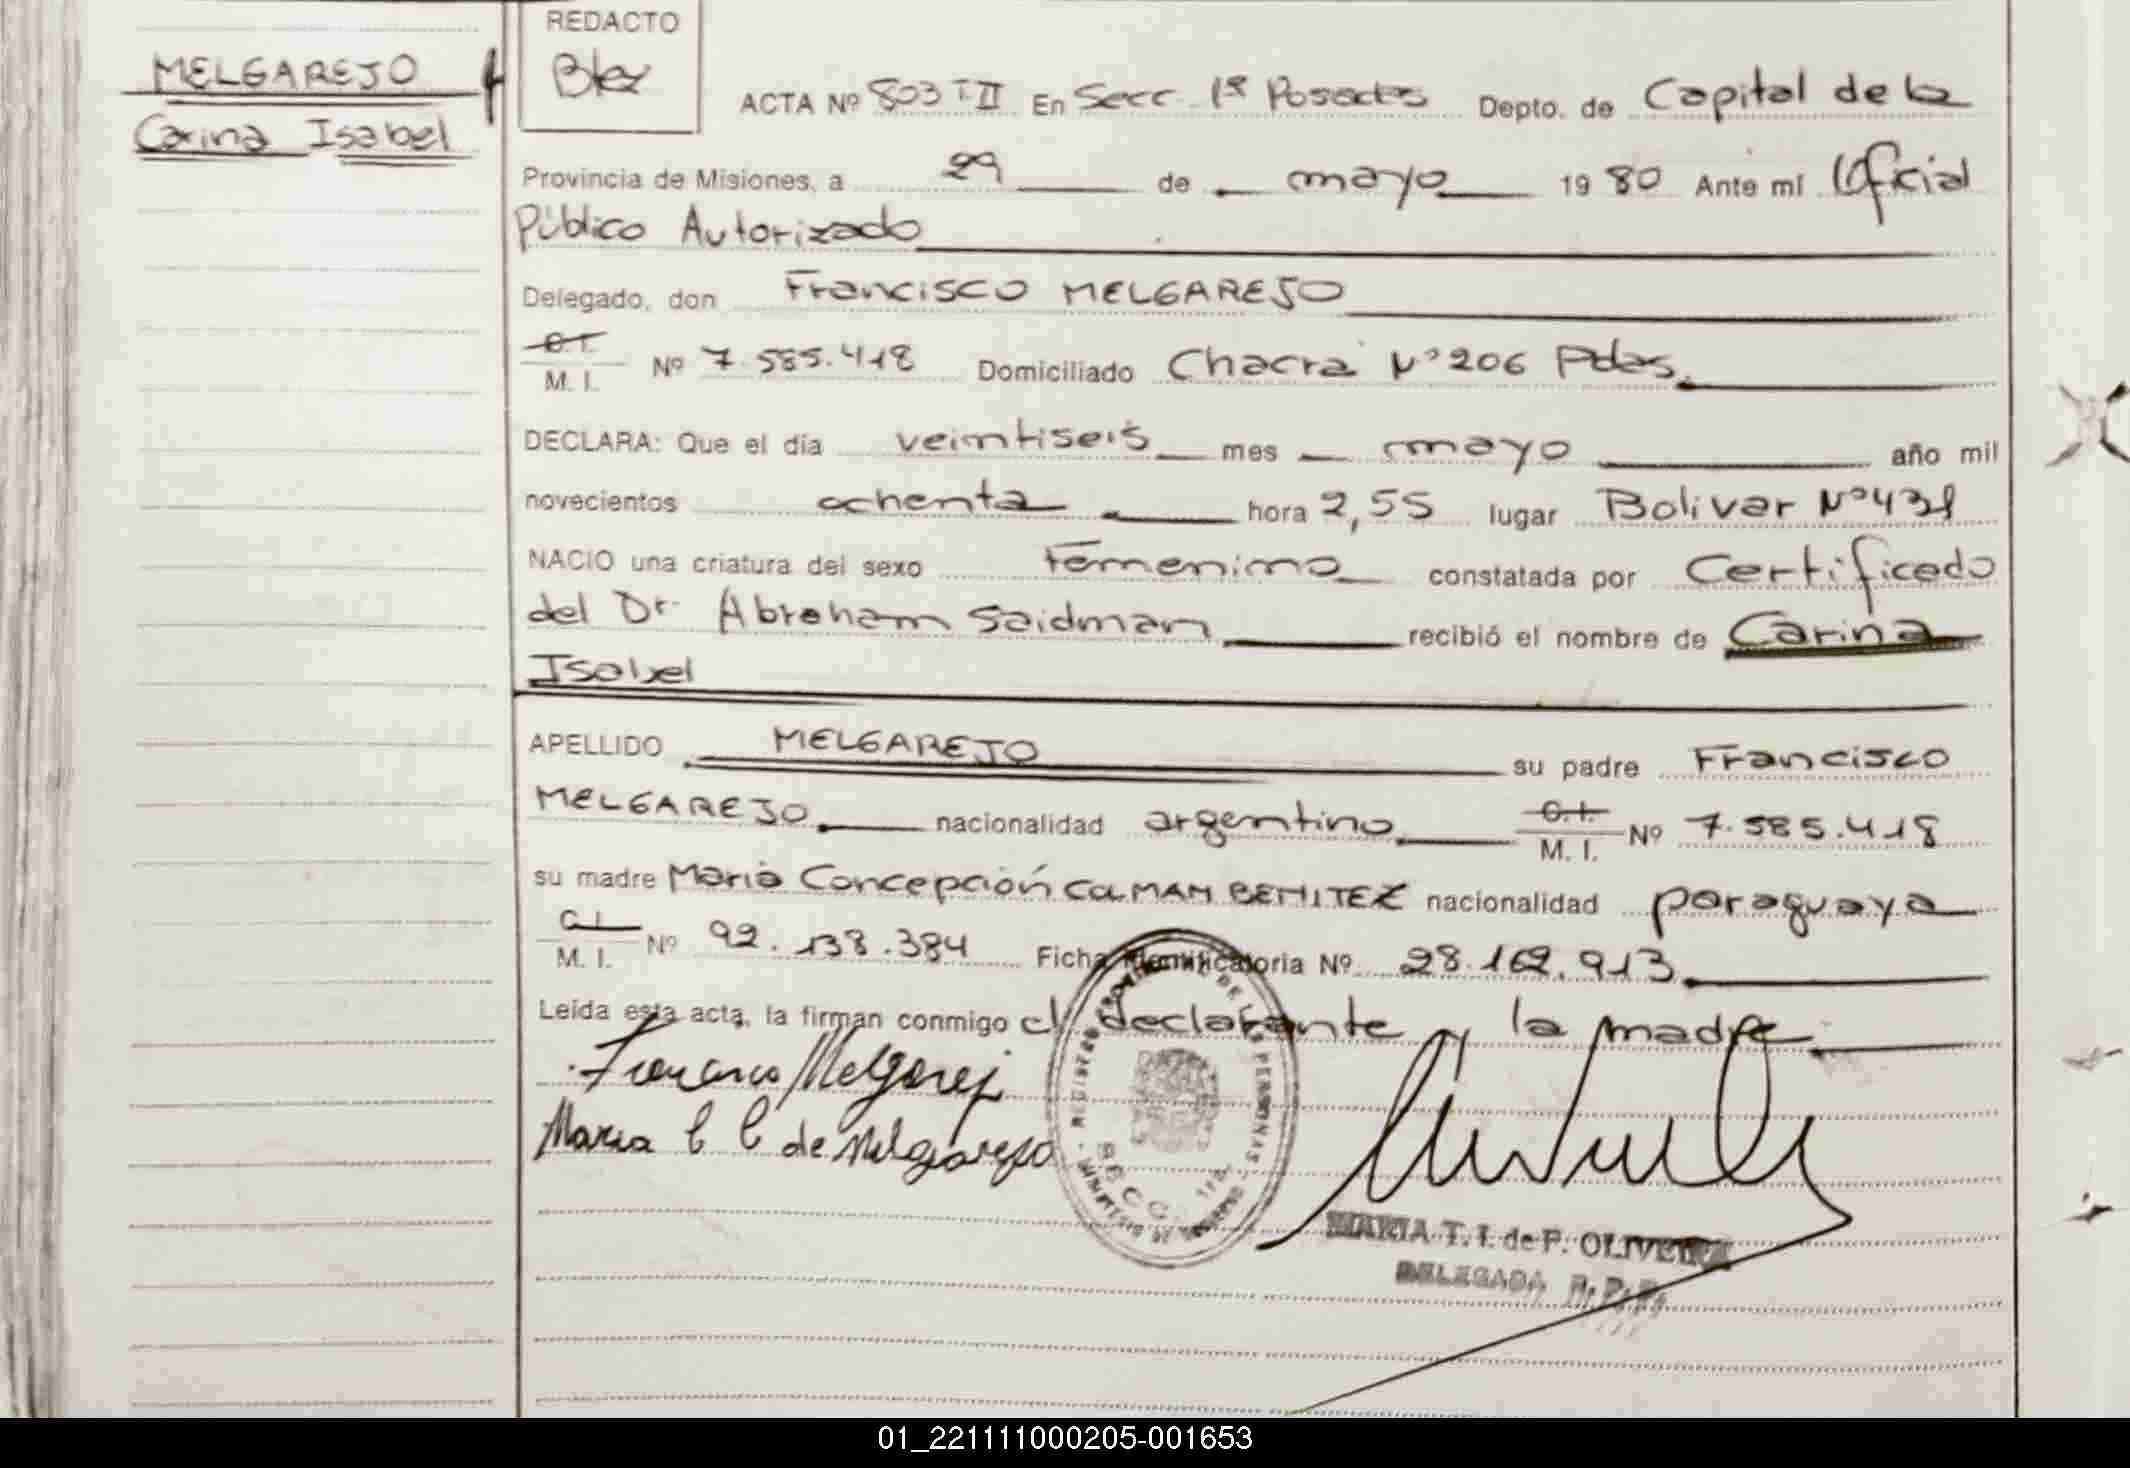 MELGAREJO
Carina Isabel
REDACTO
ACTA Nº 803 T II En Secc. 1ª Posadas Depto. de Capital de la
Provincia de Misiones, a 29 de mayo 1980 Ante mí Oficial
Público Autorizado
Delegado, don Francisco MELGAREJO
C.I.
M. I. Nº 7.585.418 Domiciliado Chacra Nº 206 Pdas.
DECLARA: Que el día veintiseis mes mayo año mil
novecientos ochenta hora 2,55 lugar Bolivar Nº 431
NACIO una criatura del sexo Femenino constatada por Certificado
del Dr. Abraham Saidman recibió el nombre de Carina
Isabel
APELLIDO MELGAREJO su padre Francisco
MELGAREJO nacionalidad argentino C.I.
M. I. Nº 7.585.418
su madre Maria Concepción COLMAN BENITEZ nacionalidad paraguaya
C.I.
M. I. Nº 92.138.384 Ficha Identificatoria Nº 28.162.913
Leída esta acta, la firman conmigo el declarante y la madre
Francisco Melgarejo
Maria C C de Melgarejo
MARIA T. I. de P. OLIVEIRA
DELEGADA R. P. P.
01_221111000205-001653